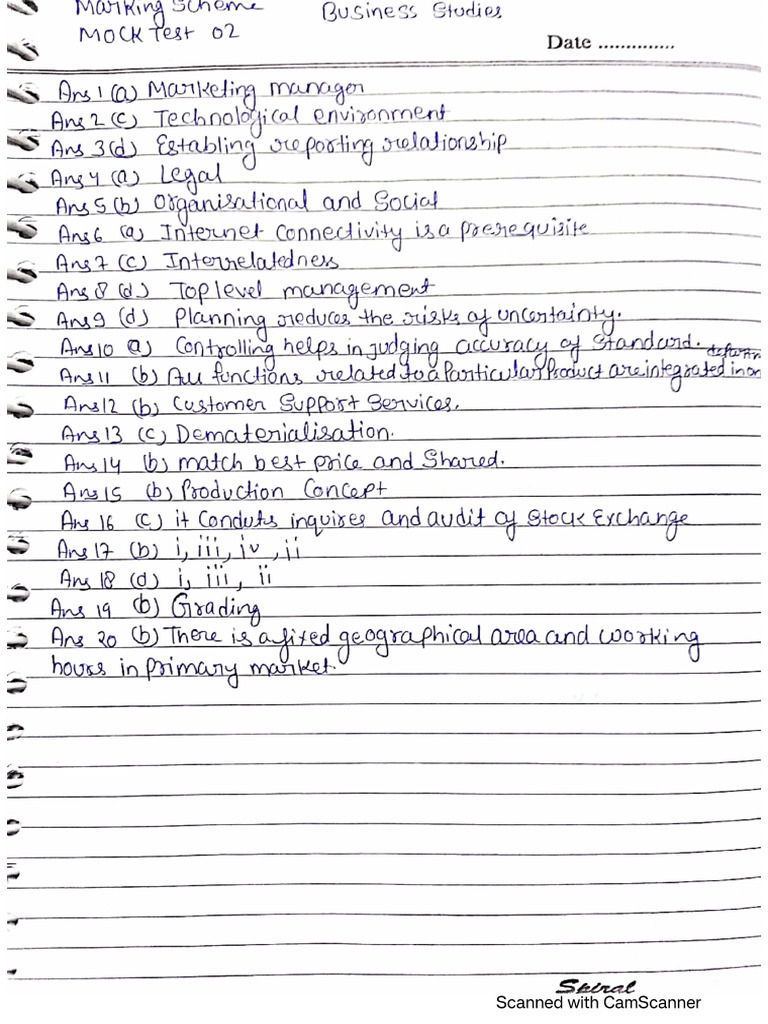 Marking Scheme Business Studies
MOCK Test 02
Date ..............
Ans 1 (a) Marketing manager
Ans 2 (c) Technological environment
Ans 3 (d) Establing reporting relationship
Ans 4 (a) Legal
Ans 5 (b) Organisational and Social
Ans 6 (a) Internet Connectivity is a prerequisite
Ans 7 (c) Interrelatedness
Ans 8 (d) Top level management
Ans 9 (d) Planning reduces the risks of uncertainty.
Ans 10 (a) Controlling helps in judging accuracy of Standard.
Ans 11 (b) All functions related to a Particular Product are integrated in one
Ans 12 (b) Customer Support Services.
Ans 13 (c) Dematerialisation.
Ans 14 (b) match best price and Shared.
Ans 15 (b) Production Concept
Ans 16 (c) it Conduts inquires and audit of Stock Exchange
Ans 17 (b) i, iii, iv, ii
Ans 18 (d) i, iii, ii
Ans 19 (b) Grading
Ans 20 (b) There is a fixed geographical area and working
hours in primary market.
Spiral
Scanned with CamScanner